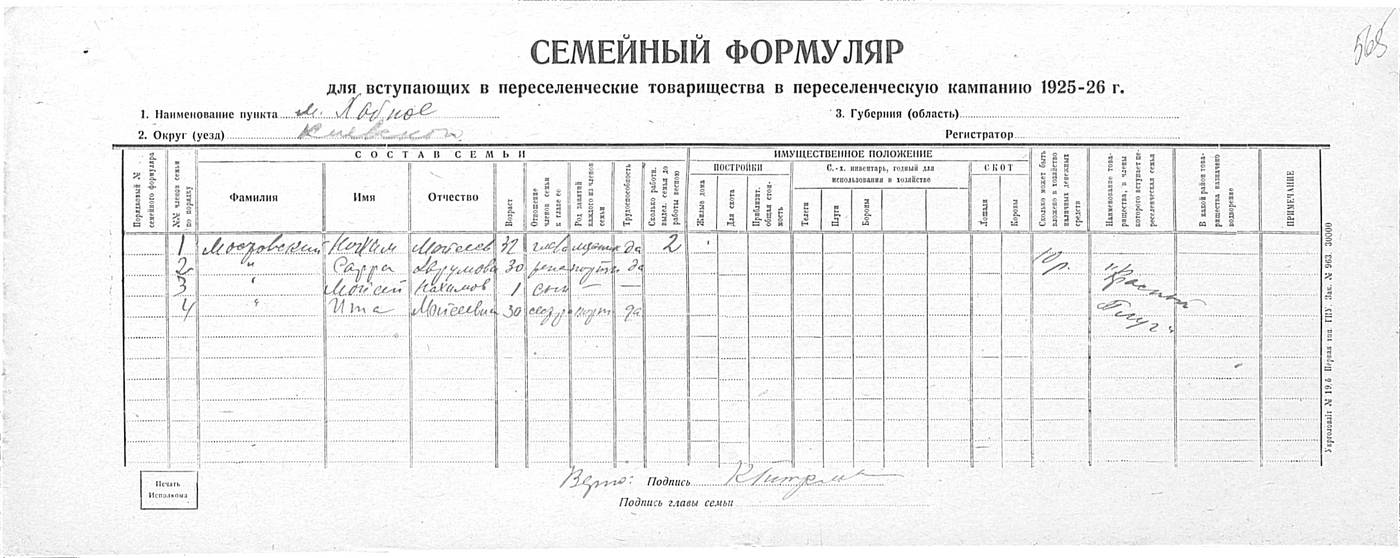 565
СЕМЕЙНЫЙ ФОРМУЛЯР
для вступающих в переселенческие товарищества в переселенческую кампанию 1925-26 г.
1. Наименование пункта м. Хабное
3. Губерния (область)
2. Округ (уезд) Киевской
Регистратор
Порядковый № семейного формуляра
№№ членов семьи по порядку
СОСТАВ СЕМЬИ
Фамилия
Имя
Отчество
Возраст
Отношение членов семьи к главе ее
Род занятий каждого из членов семьи
Трудоспособность
Сколько работн. выдел. семья до работы весною
ИМУЩЕСТВЕННОЕ ПОЛОЖЕНИЕ
ПОСТРОЙКИ
Жилые дома
Для скота
Приблизит. общая стоимость
С.-х. инвентарь, годный для использования в хозяйстве
Телеги
Плуги
Бороны
СКОТ
Лошади
Коровы
Сколько может быть вложено в хозяйство наличных денежных средств
Наименование товарищества, в члены которого вступает переселенческая семья
В какой район товарищества назначено водворение
ПРИМЕЧАНИЕ
1 Мостовский Мойсеев 32 глава да 2
2 " Сарра Аврумова 30 жена портн да
3 " Мойсей Нахимов 1 сын — —
4 " Ита Мойсеевна 30 сестра портн да
"Красный
Плуг"
Укрголовліт № 19.6 Первая тип. ГПУ Зак. № 963. 30000
Печать
Исполкома
Верно: Подпись
Подпись главы семьи